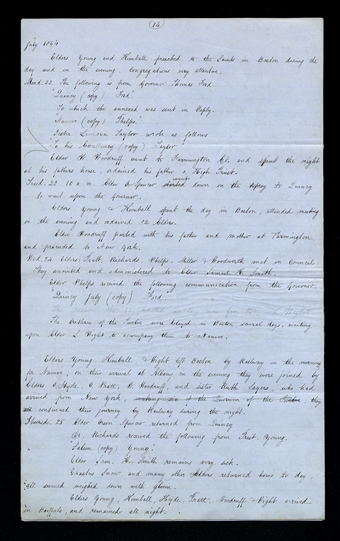 (14)
July 1844
Elders Young and Kimball preached to the Saints in Boston during the
day and in the evening. Congregations very attentive.
Mond. 22. The following is from Governor Thomas Ford.
"Quincy (copy) Ford"
To which the annexed was sent in reply.
"Nauvoo (copy) Phelps."
Sister Leonora Taylor wrote as follows
"To his Excellency (copy) Taylor"
Elder W. Woodruff went to Farmington Ct. and spent the night
at his fathers house, ordained his father a High Priest.
Tues. 23 10 a.m. Elder O. Spencer started down on the Osprey to Quincy
to wait upon the Governor.
Elders Young & Kimball spent the day in Boston, attended meeting
in the evening and ordained 12 Elders.
Elder Woodruff parted with his father and mother at Farmington
and proceeded to New York.
Wed. 24 Elders Pratt, Richards, Phelps, Miller & Woodworth met in Council
They anointed and administered to Elder Samuel H. Smith
Elder Phelps received the following communication from the Governor.
"Quincy July (copy) Ford
The brethren of the Twelve were delayed in Boston several days, waiting
upon Elder L. Wight to accompany them to Nauvoo.
Elders Young, Kimball & Wight left Boston by Railway in the morning
for Nauvoo; on their arrival at Albany in the evening they were joined by
Elders O. Hyde, O. Pratt, W. Woodruff, and sister Ruth Sayers, who had
arrived from New York, of the they
continued their journey by Railway during the night.
Thursd. 25 Elder Orson Spencer returned from Quincy
Dr Richards received the following from Prest Young.
"Salem (copy) Young.
Elder Sam. H. Smith remains very sick.
Erastus Snow and many other Elders returned home to day
all seemed weighed down with gloom.
Elders Young, Kimball, Hyde, Pratt, Woodruff & Wight arrived
in Buffalo, and remained all night.